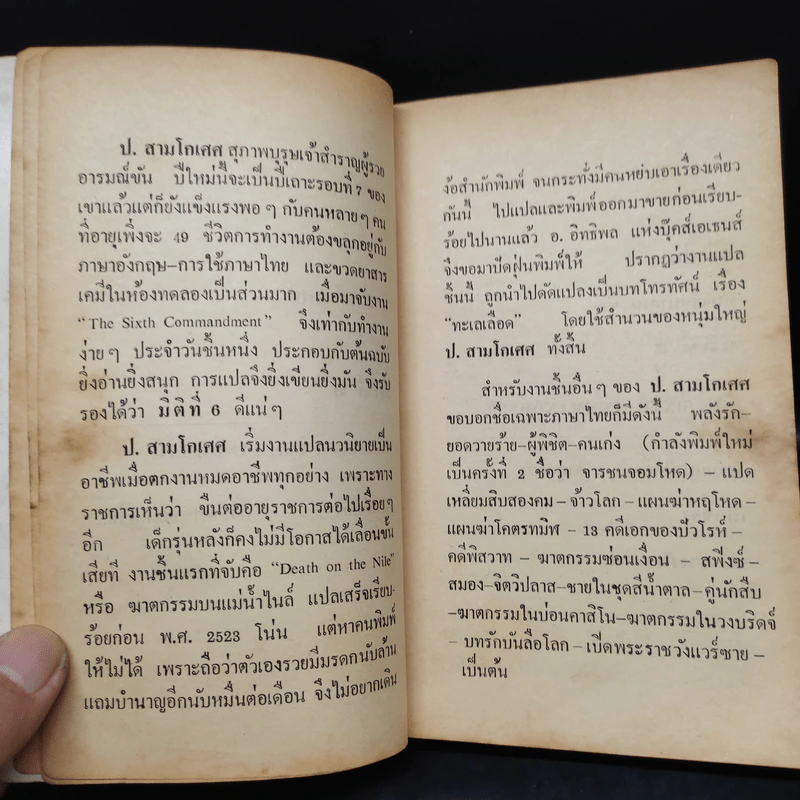 ป. สามโกเศศ สุภาพบุรุษเจ้าสำราญผู้รวย
อารมณ์ขัน ปีใหม่นี้จะเป็นปีเถาะรอบที่ 7 ของ
เขาแล้วแต่ก็ยังแข็งแรงพอๆ กับคนหลายๆ คน
ที่อายุเพิ่งจะ 49 ชีวิตการทำงานต้องขลุกอยู่กับ
ภาษาอังกฤษ–การใช้ภาษาไทย และขวดยาสาร
เคมีในห้องทดลองเป็นส่วนมาก เมื่อมาจับงาน
“The Sixth Commandment” จึงเท่ากับทำงาน
ง่ายๆ ประจำวันชิ้นหนึ่ง ประกอบกับต้นฉบับ
ยิ่งอ่านยิ่งสนุก การแปลจึงยิ่งเขียนยิ่งมัน จึงรับ
รองได้ว่า มิติที่ 6 ดีแน่ๆ
ป. สามโกเศศ เริ่มงานแปลนวนิยายเป็น
อาชีพเมื่อตกงานหมดอาชีพทุกอย่าง เพราะทาง
ราชการเห็นว่า ขืนต่ออายุราชการต่อไปเรื่อยๆ
อีก เด็กรุ่นหลังก็คงไม่มีโอกาสได้เลื่อนขั้น
เสียที งานชิ้นแรกที่จับคือ “Death on the Nile”
หรือ ฆาตกรรมบนแม่น้ำไนล์ แปลเสร็จเรียบ-
ร้อยก่อน พ.ศ. 2523 โน่น แต่หาคนพิมพ์
ให้ไม่ได้ เพราะถือว่าตัวเองรวยมีมรดกนับล้าน
แถมบำนาญอีกนับหมื่นต่อเดือน จึงไม่อยากเดิน
ง้อสำนักพิมพ์ จนกระทั่งมีคนหยิบเอาเรื่องเดียว
กันนี้ ไปแปลและพิมพ์ออกมาขายก่อนเรียบ-
ร้อยไปนานแล้ว อ. อิทธิพล แห่งบุ๊คส์เอเธนส์
จึงขอมาปัดฝุ่นพิมพ์ให้ ปรากฏว่างานแปล
ชิ้นนี้ ถูกนำไปดัดแปลงเป็นบทโทรทัศน์ เรื่อง
“ทะเลเลือด” โดยใช้สำนวนของหนุ่มใหญ่
ป. สามโกเศศ ทั้งสิ้น
สำหรับงานชิ้นอื่นๆ ของ ป. สามโกเศศ
ขอบอกชื่อเฉพาะภาษาไทยก็มีดังนี้ พลังรัก–
ยอดวายร้าย–ผู้พิชิต–คนเก่ง (กำลังพิมพ์ใหม่
เป็นครั้งที่ 2 ชื่อว่า จารชนจอมโหด) – แปด
เหลี่ยมสิบสองคม – จ้าวโลก – แผนฆ่าหฤโหด –
แผนฆ่าโคตรทมิฬ – 13 คดีเอกของปัวโรห์ –
คดีพิสวาท – ฆาตกรรมซ่อนเงื่อน – สฟิงซ์ –
สมอง – จิตวิปลาส – ชายในชุดสีน้ำตาล – คู่นักสืบ
–ฆาตกรรมในบ่อนคาสิโน–ฆาตกรรมในวงบริดจ์
– บทรักบันลือโลก – เปิดพระราชวังแวร์ซาย –
เป็นต้น